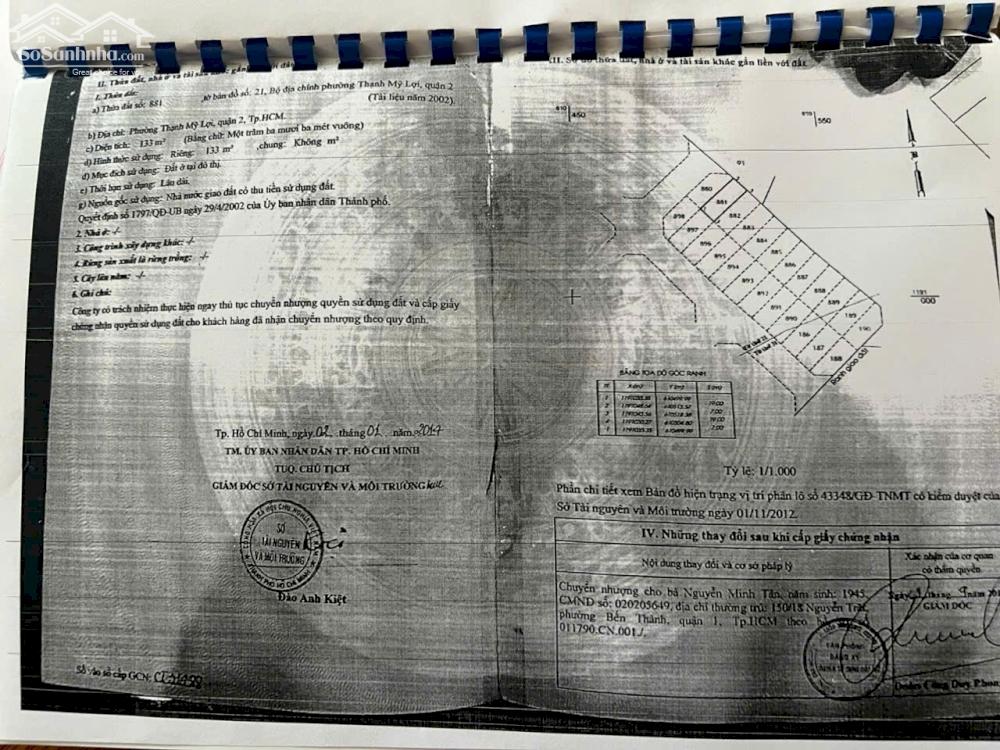 SoSanhnha.com
Great choice for you
II. Thửa đất, nhà ở và tài sản khác gắn liền với đất
1. Thửa đất:
a) Thửa đất số: 881 ,tờ bản đồ số: 21, Bộ địa chính phường Thạnh Mỹ Lợi, quận 2
(Tài liệu năm 2002).
b) Địa chỉ: Phường Thạnh Mỹ Lợi, quận 2, Tp.HCM.
c) Diện tích: 133 m² (Bằng chữ: Một trăm ba mươi ba mét vuông)
d) Hình thức sử dụng: Riêng: 133 m² ,chung: Không m²
đ) Mục đích sử dụng: Đất ở tại đô thị.
e) Thời hạn sử dụng: Lâu dài.
g) Nguồn gốc sử dụng: Nhà nước giao đất có thu tiền sử dụng đất.
Quyết định số 1797/QĐ-UB ngày 29/4/2002 của Ủy ban nhân dân Thành phố.
2. Nhà ở: -/-
3. Công trình xây dựng khác: -/-
4. Rừng sản xuất là rừng trồng: -/-
5. Cây lâu năm: -/-
6. Ghi chú:
Công ty có trách nhiệm thực hiện ngay thủ tục chuyển nhượng quyền sử dụng đất và cấp giấy
chứng nhận quyền sử dụng đất cho khách hàng đã nhận chuyển nhượng theo quy định.
Tp. Hồ Chí Minh, ngày 02 tháng 01 năm 2014
TM. ỦY BAN NHÂN DÂN TP. HỒ CHÍ MINH
TUQ. CHỦ TỊCH
GIÁM ĐỐC SỞ TÀI NGUYÊN VÀ MÔI TRƯỜNG
SỞ
TÀI NGUYÊN
VÀ MÔI TRƯỜNG
Đào Anh Kiệt
Số vào sổ cấp GCN:
III. Sơ đồ thửa đất, nhà ở và tài sản khác gắn liền với đất
810
450
810
550
91
880
881
882
883
884
885
886
887
888
889
189
190
898
897
896
895
894
893
892
891
890
186
187
188
Ranh giao đất
1191
000
BẢNG TỌA ĐỘ GÓC RANH
Tỷ lệ: 1/1.000
Phần chi tiết xem Bản đồ hiện trạng vị trí phân lô số 43348/GĐ-TNMT có kiểm duyệt của
Sở Tài nguyên và Môi trường ngày 01/11/2012.
IV. Những thay đổi sau khi cấp giấy chứng nhận
Nội dung thay đổi và cơ sở pháp lý
Xác nhận của cơ quan
có thẩm quyền
Chuyển nhượng cho bà Nguyễn Minh Tân, năm sinh: 1945,
CMND số: 020205649, địa chỉ thường trú: 150/18 Nguyễn Trãi,
phường Bến Thành, quận 1, Tp.HCM theo
011790.CN.001./.
GIÁM ĐỐC
VĂN PHÒNG
ĐĂNG KÝ